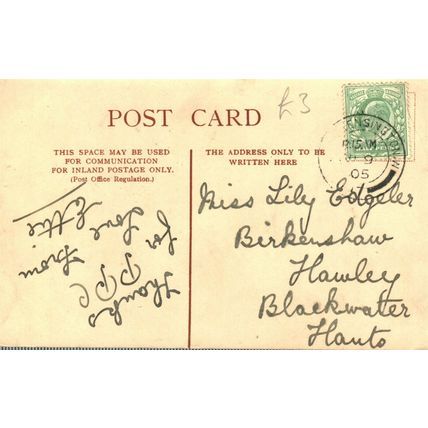 £3
POST CARD
THIS SPACE MAY BE USED
FOR COMMUNICATION
FOR INLAND POSTAGE ONLY.
(Post Office Regulation.)
THE ADDRESS ONLY TO BE
WRITTEN HERE
Thanks for
PPC Love
from Ettie
Miss Lily Edgeler
Birkenshaw
Hawley
Blackwater
Hants
ENSINGTON W
9
05